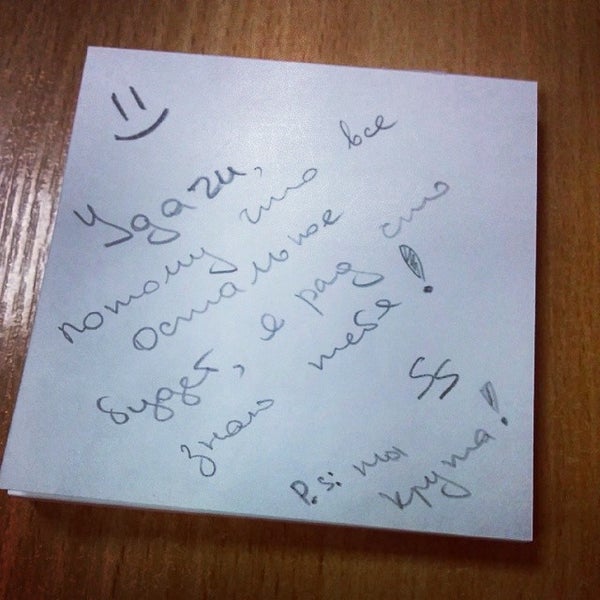 Удачи,
потому что все
остальное
будет, я рад что
знаю тебя!
SS
P.S: ты
крута!